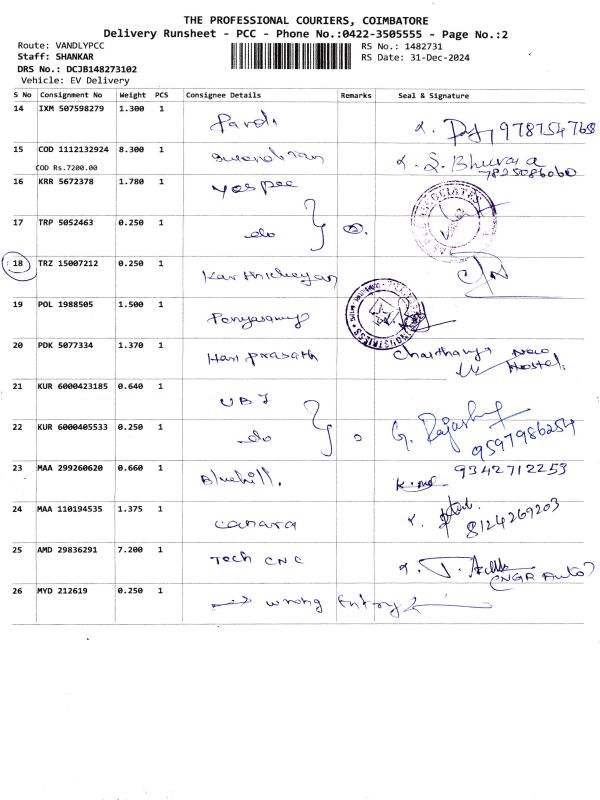 THE PROFESSIONAL COURIERS, COIMBATORE
Delivery Runsheet - PCC - Phone No.:0422-3505555 - Page No.:2
Route: VANDLYPCC
RS No.: 1482731
Staff: SHANKAR
RS Date: 31-Dec-2024
DRS No.: DCJB148273102
Vehicle: EV Delivery
S No Consignment No Weight PCS Consignee Details Remarks Seal & Signature
14 IXM 507598279 1.300 1
15 COD 1112132924 8.300 1 S. Bhuvana
COD Rs.7200.00 7825086060
16 KRR 5672378 1.780 1 yespee
17 TRP 5052463 0.250 1 do
18 TRZ 15007212 0.250 1 Karthickeyan
19 POL 1988505 1.500 1
20 PDK 5077334 1.370 1 Hari prasath New Hostel
21 KUR 6000423185 0.640 1 UBI
22 KUR 6000405533 0.250 1 do G. 9597986254
23 MAA 299260620 0.660 1 Bluehill. 9342712253
24 MAA 110194535 1.375 1 canara 8124269203
25 AMD 29836291 7.200 1 Tech CNC (NGR Auto)
26 MYD 212619 0.250 1 wrong Entry